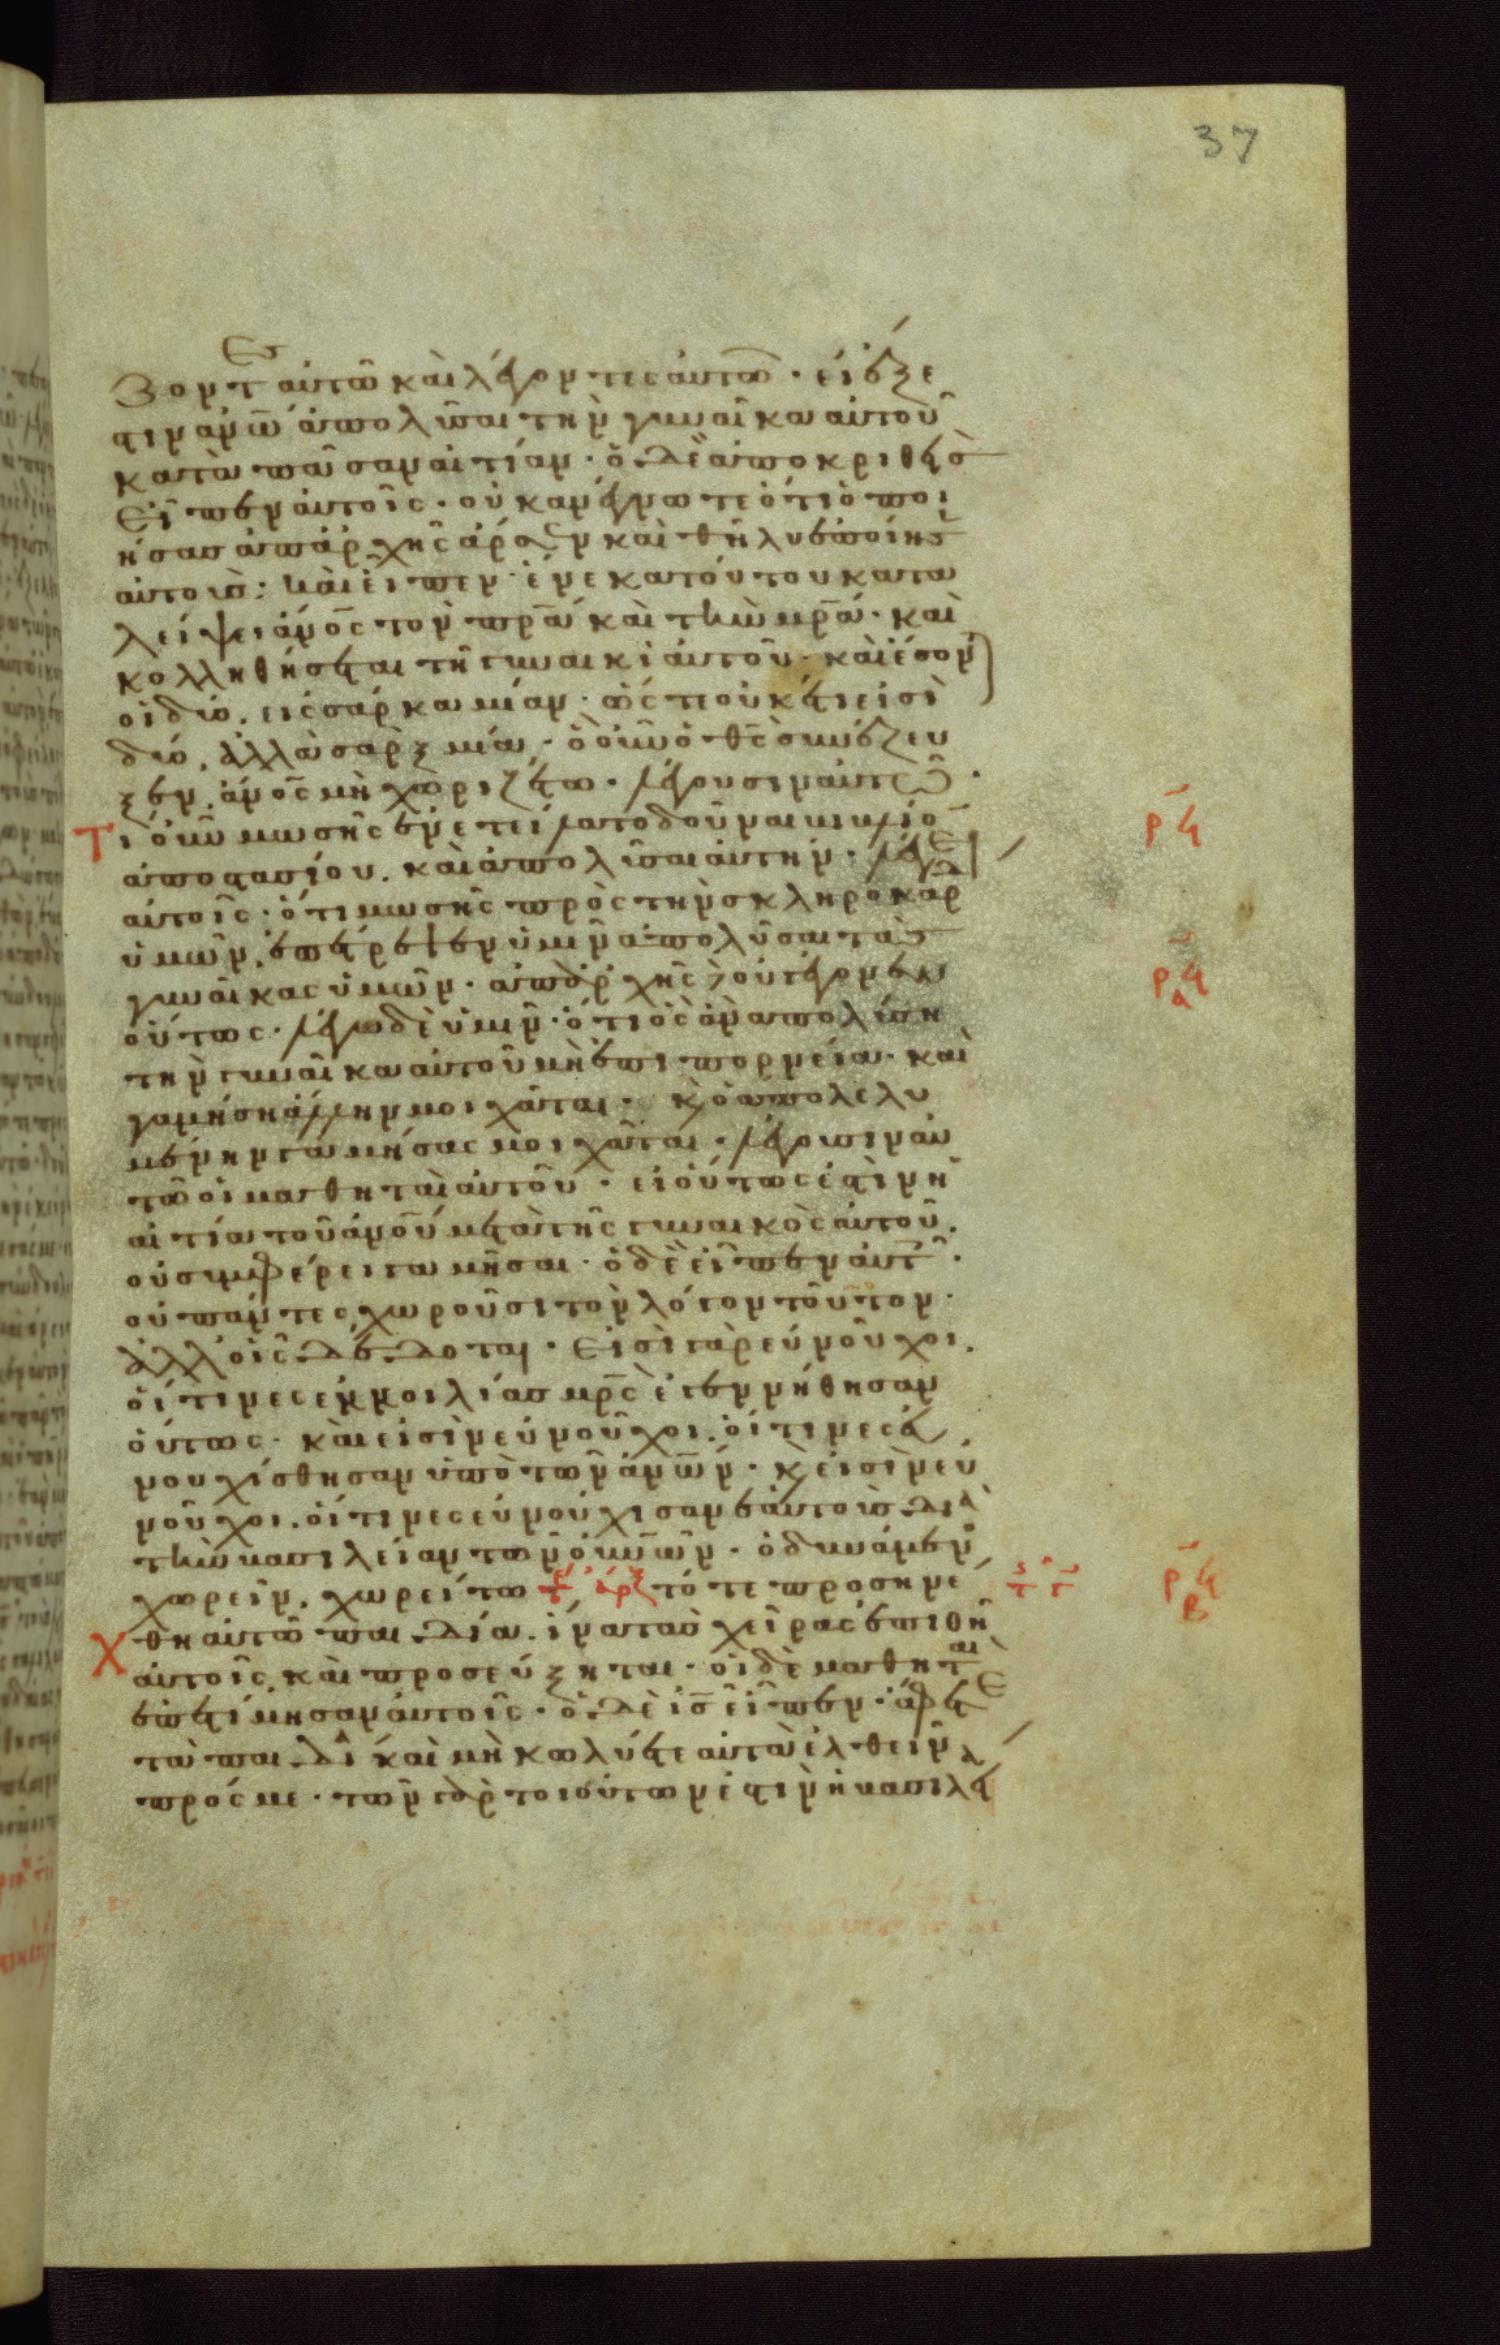 37
ζοντες αὐτῶ καὶ λέγοντες αὐτῶ · εἰ ἔξε
στιν ἀνω ἀπολῦσαι τὴν γυναῖκα αὐτοῦ
κατὰ πᾶσαν αἰτίαν · ὁ δὲ ἀποκριθεὶσ
εἶπεν αὐτοῖς · οὐκ ἀνέγνωτε ὅτι ὁ ποι
ήσασ ἀπαρχῆς ἄρσεν καὶ θῆλυ ἐποίησ
αὐτοὺσ : καὶ εἶπεν · ἕνεκα τούτου κατα
λείψει ἄνος τὸν πρα καὶ τὴν μρα · καὶ
κολληθήσεται τῆ γυναικὶ αὐτοῦ · καὶ ἔσον
οἱ δύο εἰς σάρκα μίαν · ὥστε οὐκέτι εἰσὶ
δύο , ἀλλὰ σὰρξ μία · ὃ οὖν ὁ θς συνέζευ
ξεν , ἄνος μὴ χωριζέτω · λέγουσιν αὐτῶ ·
Τί οὖν μωσῆς ἐνετείλατο δοῦναι βιβλίο
ἀποστασίου , καὶ ἀπολῦσαι αὐτήν · λέγει
αὐτοῖς · ὅτι μωσῆς πρὸς τὴν σκληροκαρ
ὑμῶν , ἐπέτρεψεν ὑμῖν ἀπολῦσαι τὰσ
γυναῖκας ὑμῶν · ἀπαρχῆς δὲ οὐ γέγονεν
οὕτως · λέγω δὲ ὑμῖν · ὅτι ὃς ἂν ἀπολύση
τὴν γυναῖκα αὐτοῦ μὴ ἐπὶ πορνεία · καὶ
γαμήση ἄλλην μοιχᾶται · κ ὁ ἀπολελυ
μένην γαμήσας μοιχᾶται · λέγουσιν αὐ
τῶ οἱ μαθηταὶ αὐτοῦ · εἰ οὕτως ἐστὶν ἡ
αἰτία τοῦ ἀνου μετὰ τῆς γυναικὸς αὐτοῦ .
οὐ συμφέρει γαμῆσαι · ὁ δὲ εἶπεν αὐτ ·
οὐ πάντες χωροῦσι τὸν λόγον τοῦτον ·
ἀλλ οἷς δέδοται · εἰσὶ γὰρ εὐνοῦχοι .
οἵτινες ἐκ κοιλίασ μρς ἐγεννήθησαν
οὕτως · καὶ εἰσὶν εὐνοῦχοι . οἵτινες εὐ
νουχίσθησαν ὑπὸ τῶν ἀνων · κ εἰσὶν εὐ
νοῦχοι . οἵτινες εὐνούχισαν ἑαυτοὺσ διὰ
τὴν βασιλείαν τῶν οὐνων · ὁ δυνάμεν
χωρεῖν , χωρείτω τε ἀρχ τότε προσηνέ
Χθη αὐτῶ παιδία . ἵνα τασ χεῖρας ἐπιθῆ
αὐτοῖς , καὶ προσεύξηται · οἱ δὲ μαθηταὶ
ἐπετίμησαν αὐτοῖς · ὁ δὲ ις εἶπεν · ἄφετε
τὰ παιδία καὶ μὴ κωλύετε αὐτὰ ἐλθεῖν
πρός με · τῶν γὰρ τοιούτων ἐστὶν ἡ βασιλεί